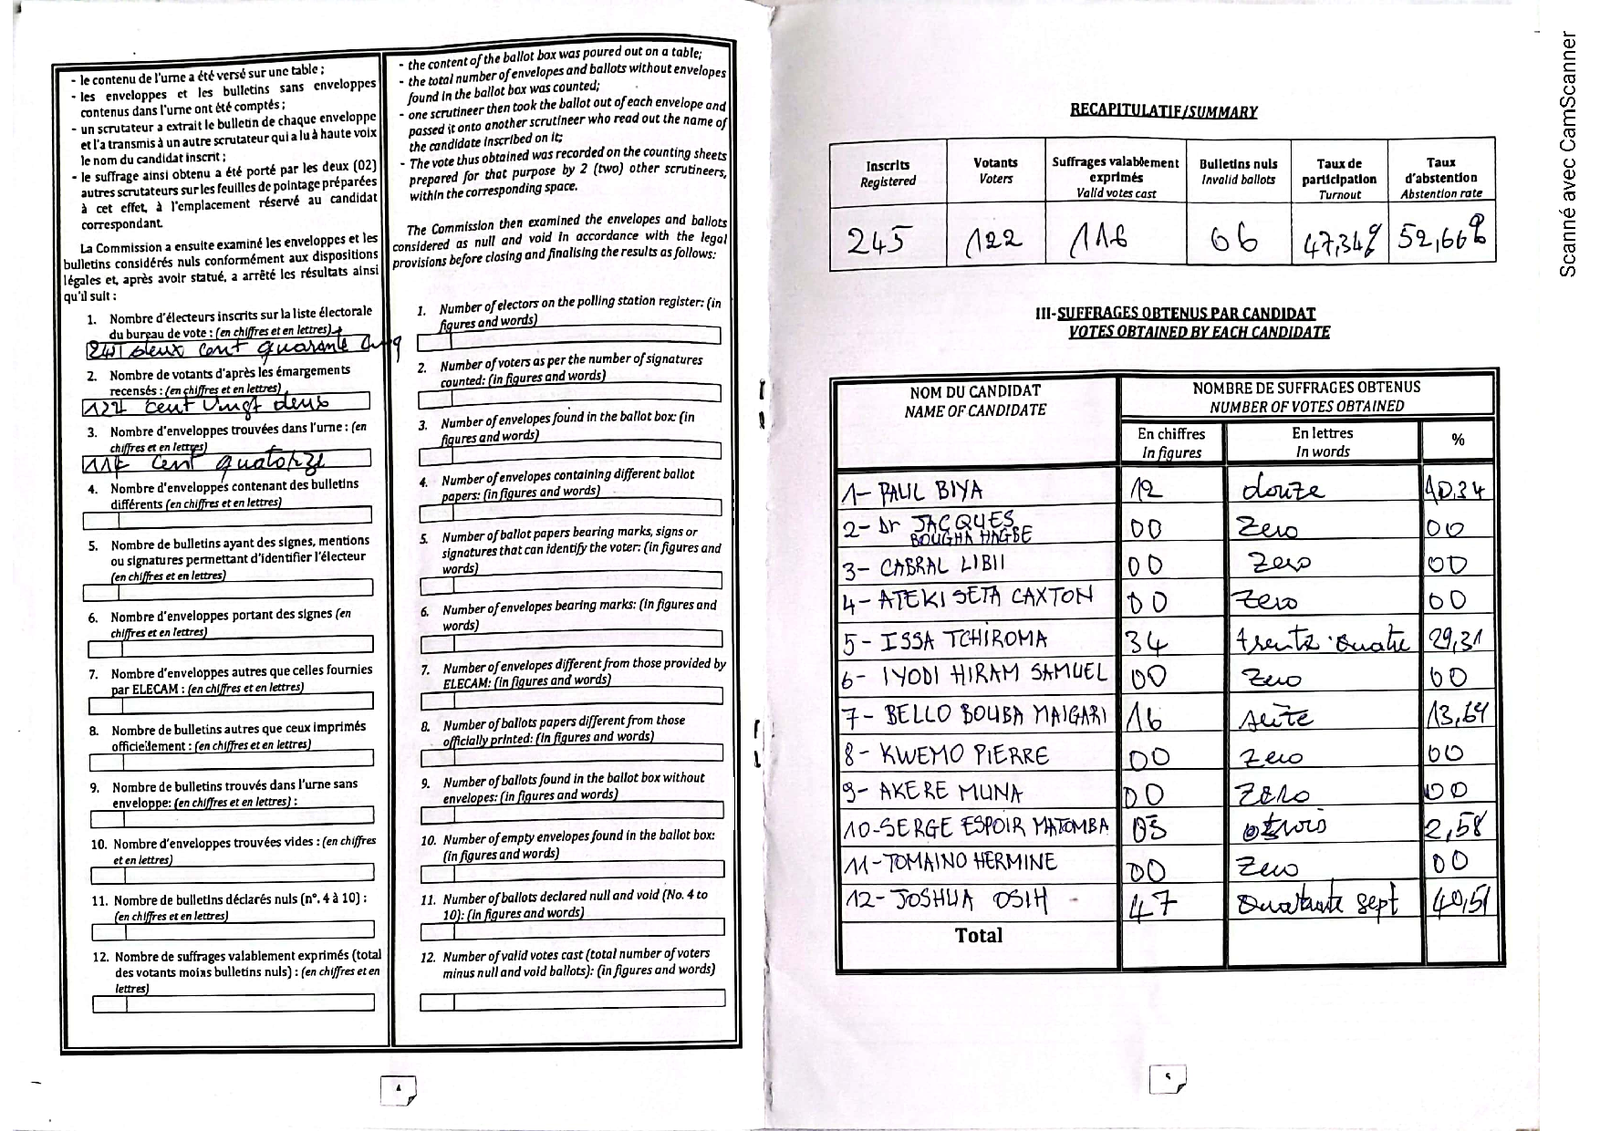 - le contenu de l'urne a été versé sur une table ;
- les enveloppes et les bulletins sans enveloppes
contenus dans l'urne ont été comptés ;
- un scrutateur a extrait le bulletin de chaque enveloppe
et l'a transmis à un autre scrutateur qui a lu à haute voix
le nom du candidat inscrit ;
- le suffrage ainsi obtenu a été porté par les deux (02)
autres scrutateurs sur les feuilles de pointage préparées
à cet effet, à l'emplacement réservé au candidat
correspondant.
La Commission a ensuite examiné les enveloppes et les
bulletins considérés nuls conformément aux dispositions
légales et, après avoir statué, a arrêté les résultats ainsi
qu'il suit :
1. Nombre d'électeurs inscrits sur la liste électorale
du bureau de vote : (en chiffres et en lettres)
deux cent quarante cinq
2. Nombre de votants d'après les émargements
recensés : (en chiffres et en lettres)
122 cent vingt deux
3. Nombre d'enveloppes trouvées dans l'urne : (en
chiffres et en lettres)
cent quatorze
4. Nombre d'enveloppes contenant des bulletins
différents (en chiffres et en lettres)
5. Nombre de bulletins ayant des signes, mentions
ou signatures permettant d'identifier l'électeur
(en chiffres et en lettres)
6. Nombre d'enveloppes portant des signes (en
chiffres et en lettres)
7. Nombre d'enveloppes autres que celles fournies
par ELECAM : (en chiffres et en lettres)
8. Nombre de bulletins autres que ceux imprimés
officiellement : (en chiffres et en lettres)
9. Nombre de bulletins trouvés dans l'urne sans
enveloppe: (en chiffres et en lettres) :
10. Nombre d'enveloppes trouvées vides : (en chiffres
et en lettres)
11. Nombre de bulletins déclarés nuls (n°. 4 à 10) :
(en chiffres et en lettres)
12. Nombre de suffrages valablement exprimés (total
des votants moins bulletins nuls) : (en chiffres et en
lettres)
- the content of the ballot box was poured out on a table;
- the total number of envelopes and ballots without envelopes
found in the ballot box was counted;
- one scrutineer then took the ballot out of each envelope and
passed it onto another scrutineer who read out the name of
the candidate inscribed on it;
- The vote thus obtained was recorded on the counting sheets
prepared for that purpose by 2 (two) other scrutineers,
within the corresponding space.
The Commission then examined the envelopes and ballots
considered as null and void in accordance with the legal
provisions before closing and finalising the results as follows:
1. Number of electors on the polling station register: (in
figures and words)
2. Number of voters as per the number of signatures
counted: (in figures and words)
3. Number of envelopes found in the ballot box: (in
figures and words)
4. Number of envelopes containing different ballot
papers: (in figures and words)
5. Number of ballot papers bearing marks, signs or
signatures that can identify the voter: (in figures and
words)
6. Number of envelopes bearing marks: (in figures and
words)
7. Number of envelopes different from those provided by
ELECAM: (in figures and words)
8. Number of ballots papers different from those
officially printed: (in figures and words)
9. Number of ballots found in the ballot box without
envelopes: (in figures and words)
10. Number of empty envelopes found in the ballot box:
(in figures and words)
11. Number of ballots declared null and void (No. 4 to
10): (in figures and words)
12. Number of valid votes cast (total number of voters
minus null and void ballots): (in figures and words)
4
RECAPITULATIF/SUMMARY
Inscrits
Registered
Votants
Voters
Suffrages valablement
exprimés
Valid votes cast
Bulletins nuls
Invalid ballots
Taux de
participation
Turnout
Taux
d'abstention
Abstention rate
245 122 116 06 47,34% 52,66%
III-SUFFRAGES OBTENUS PAR CANDIDAT
VOTES OBTAINED BY EACH CANDIDATE
NOM DU CANDIDAT
NAME OF CANDIDATE
NOMBRE DE SUFFRAGES OBTENUS
NUMBER OF VOTES OBTAINED
En chiffres
In figures
En lettres
In words
%
1- PAUL BIYA 12 douze 10,34
2- Dr JACQUES
BOUGHA HAGBE 00 Zero 00
3- CABRAL LIBII 00 Zero 00
4- ATEKI SETA CAXTON 00 Zero 00
5- ISSA TCHIROMA 34 trente quatre 29,31
6- IYODI HIRAM SAMUEL 00 Zero 00
7- BELLO BOUBA MAIGARI 16 13,64
8- KWEMO PIERRE 00 Zero 00
9- AKERE MUNA 00 Zero 00
10-SERGE ESPOIR MATOMBA 03 trois 2,58
11-TOMAINO HERMINE 00 Zero 00
12- JOSHUA OSIH 47 quarante sept 40,51
Total
5
Scanné avec CamScanner